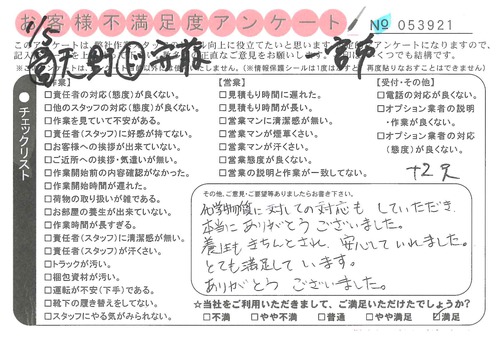 お客様不満足度アンケート
№ 053921
作業
□責任者の対応(態度)が良くない。
□他のスタッフの対応(態度)が良くない。
□作業を見ていて不安がある。
□責任者(スタッフ)に好感が持てない。
□お客様への挨拶が出来ていない。
□ご近所への挨拶・気遣いが無い。
□作業開始前の内容確認がなかった。
□作業開始時間が遅れた。
□荷物の取り扱いが雑である。
□お部屋の養生が出来ていない。
□作業時間が長すぎる。
□責任者(スタッフ)に清潔感が無い。
□責任者(スタッフ)が汗くさい。
□トラックが汚い。
□梱包資材が汚い。
□運転が不安(下手)である。
□靴下の履き替えをしてない。
□スタッフにやる気がみられない。
【営業】
□見積もり時間に遅れた。
□見積もり時間が長い。
□営業マンに清潔感が無い。
□営業マンが煙草くさい。
□営業マンが汗くさい。
□営業態度が良くない。
□営業の説明と作業が一致してない。
【受付・その他】
□電話の対応が良くない。
□オプション業者の説明
・作業が良くない。
□オプション業者の対応
(態度)が良くない。
チェックリスト
その他、ご意見・ご要望等ありましたらお書き下さい。
化学物質に対しての対応も していただき、
本当にありがとうございました。
養生もきちんとされ、安心していれました。
とても満足しています。
ありがとうございました。
☆当社をご利用いただきまして、ご満足いただけてしょうか?
□不満 □やや不満 □普通 □やや満足 ☑満足